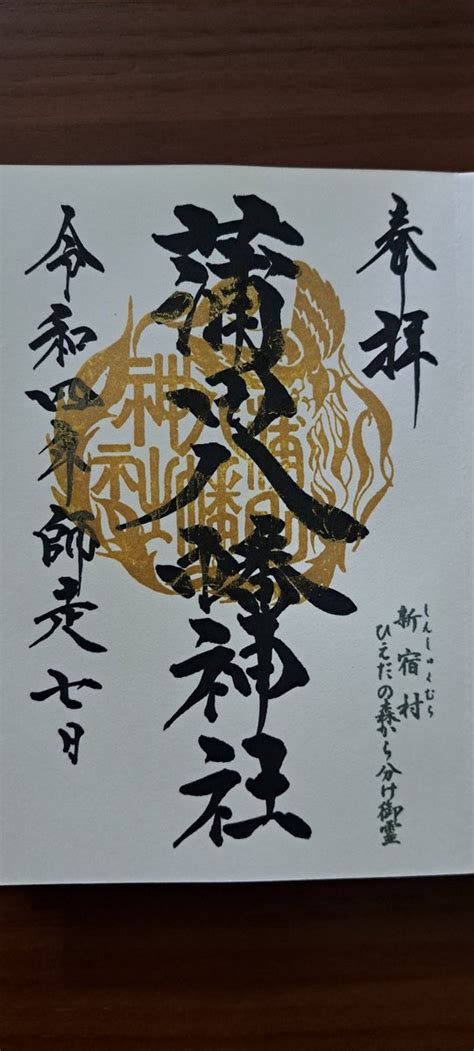 奉拝
蒲田八幡神社
令和四年師走七日
しんしゅくむら
新宿村
ひえだの森から分け御霊
蒲田
八幡
神社